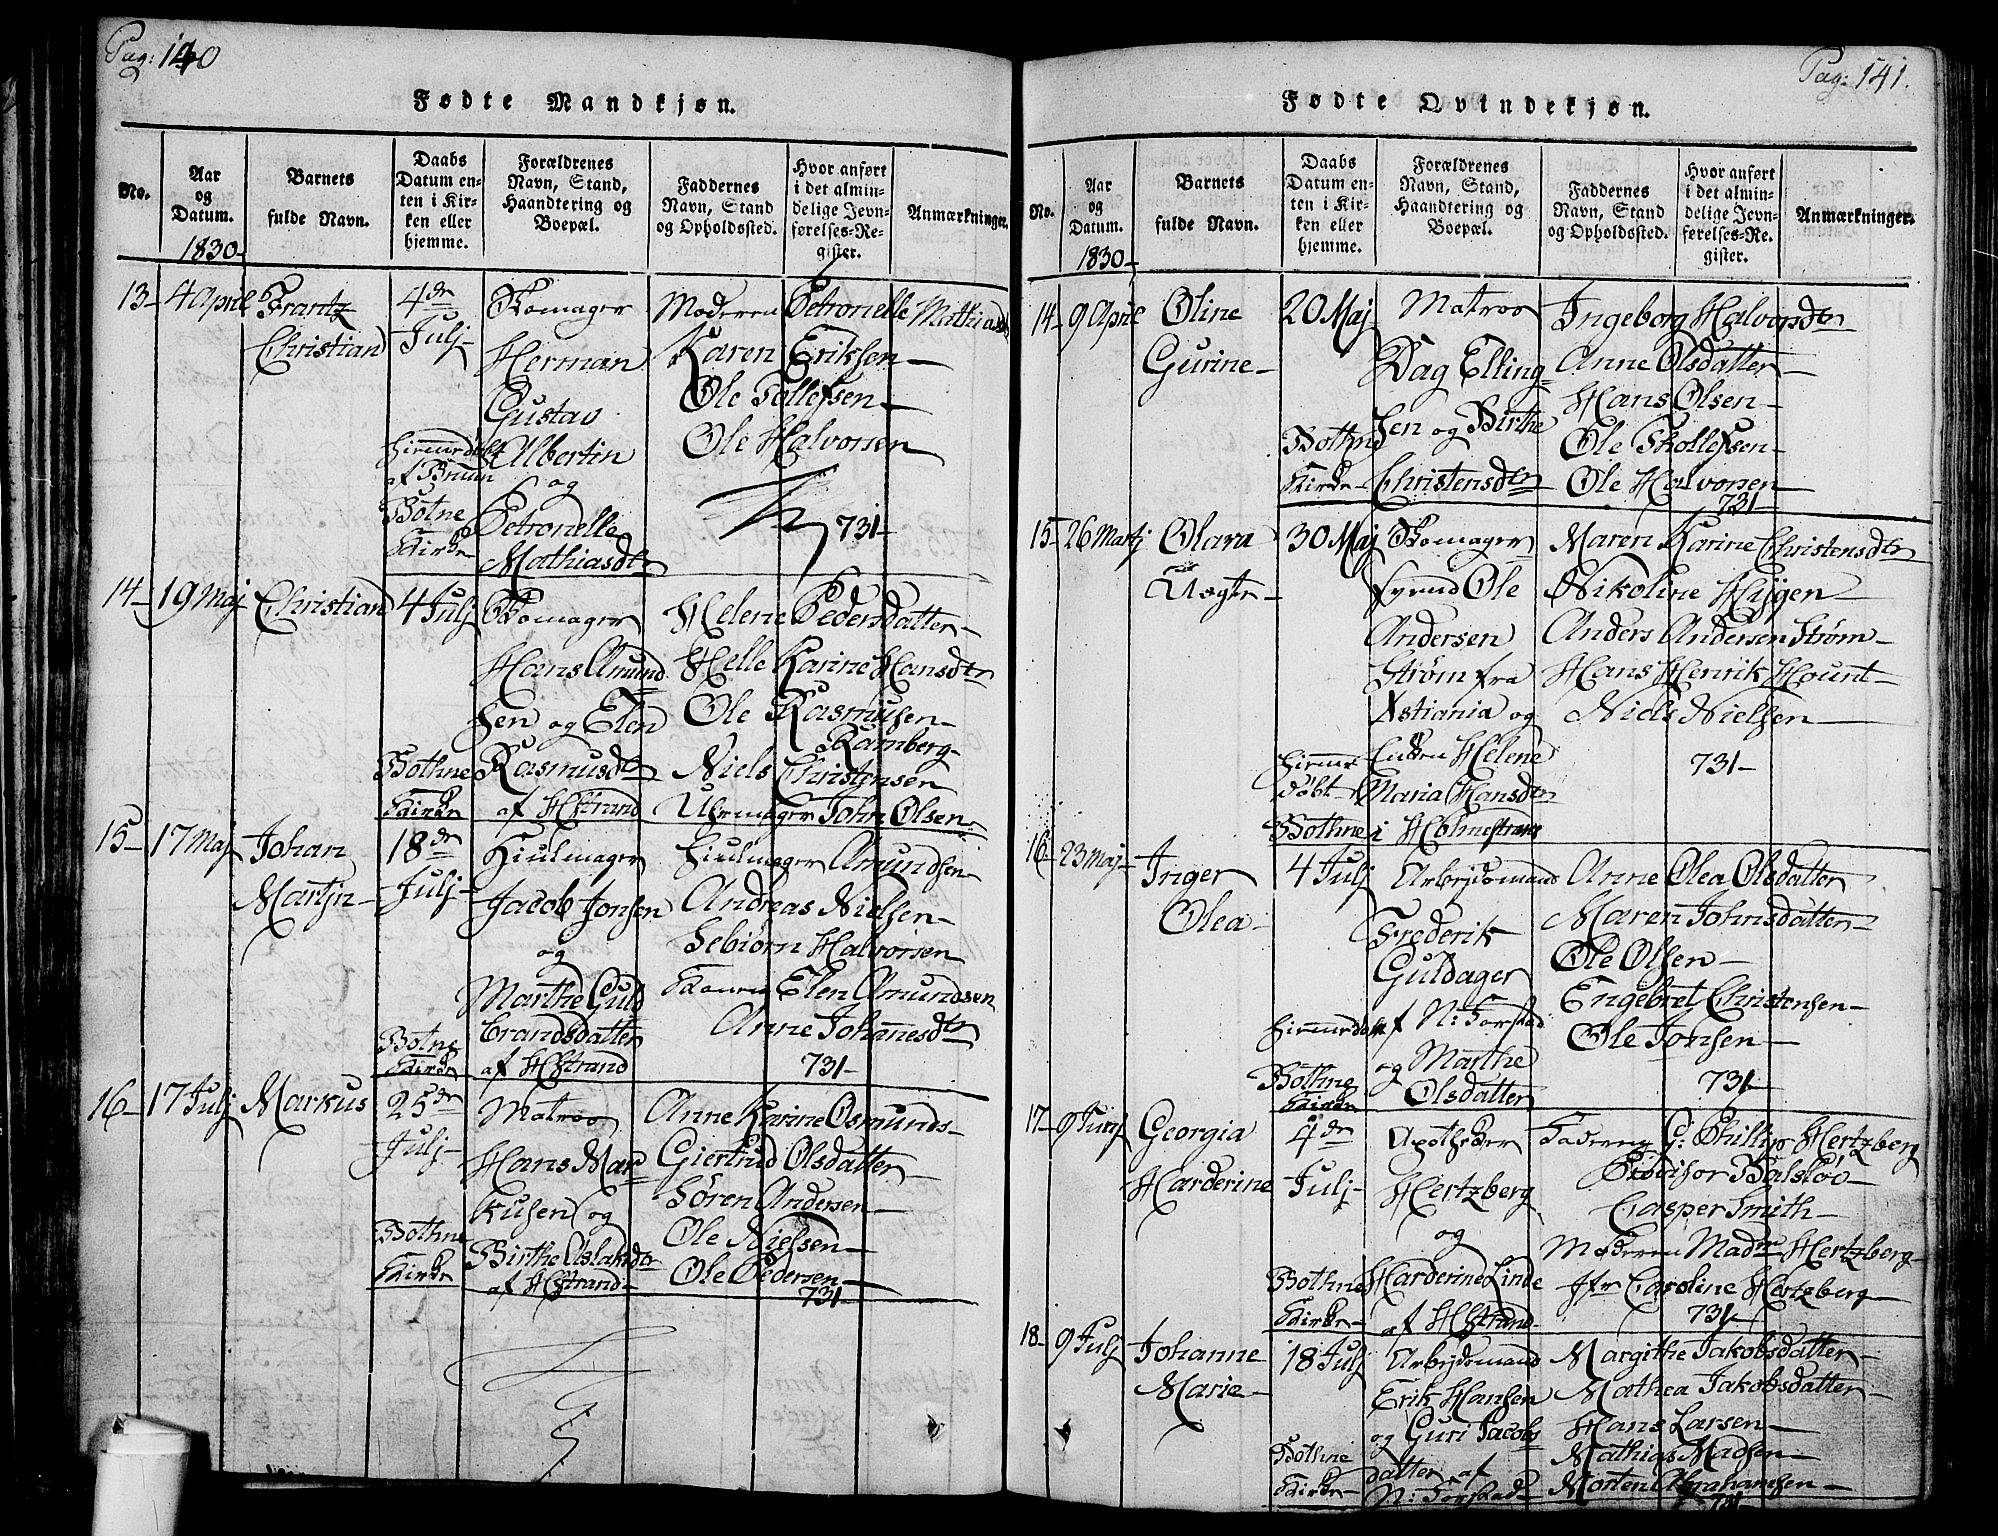 Pag: 140
Fødte Mandkjøn.
No.
Aar
og
Datum.
1830
Barnets
fulde Navn.
Daabs
Datum en-
ten i Kir-
ken eller
hjemme.
Forældrenes
Navn, Stand,
Haandtering og
Boepæl.
Faddernes
Navn, Stand
og Opholdssted.
Hvor anført
i det almin-
delige Jevn-
førelses-Re-
gister.
Anmærkninger.
13 4 April
Frantz
Christian
4de
Julj
af Bruun
Botne
Kirke
Skomager
Herman
Gustav
Albertin
og
Petronelle
Mathiasdtr
Moderen Petronelle Mathiasdtr
Karen Eriksen
Ole Tollefsen
Ole Halvorsen
731
14 19 Maj
Christian
4 Julj
Bothne
Kirke
Skomager
Hans Amund
sen og Elen
Rasmusdtr
af HStrand
Helene Pedersdatter
Helle Karine Hansdtr
Ole Rasmusen
Ramberg
Niels Christensen
Uhrmager John Olsen
15 17 Maj
Johan
Martjn
18de
Julj
Botne
Kirke
Hiulmager
Jacob Jonsen
og
Marthe Guld
brandsdatter
af HStrand
Hiulmager Amundsen
Andreas Nielsen
Sebiørn Halvorsen
Konen Elen Amundsen
Anne Johanesdtr
731
16 17 Julj
Markus
25de
Julj
Bothne
Kirke
Matros
Hans Mar
kusen og
Birthe Aslaksdtr
af HStrand
Anne Karine Osmunds
Giertrud Olsdatter
Søren Andersen
Ole Nielsen
Ole Pedersen
731
Pag: 141.
Fødte Qvindekjøn.
No.
Aar
og
Datum.
1830
Barnets
fulde Navn.
Daabs
Datum en-
ten i Kir-
ken eller
hjemme.
Forældrenes
Navn, Stand,
Haandtering og
Boepæl.
Faddernes
Navn, Stand
og Opholdssted.
Hvor anført
i det almin-
delige Jevn-
førelses-Re-
gister.
Anmærkninger.
14 9 April
Oline
Gurine
20 Maj
Bothne
Kirke
Matros
Dag Elling
sen og Birthe
Christensdtr
Ingeborg Halvorsdtr
Anne Olsdatter
Hans Olsen
Ole Thollefsen
Ole Halvorsen
731
15 26 Martj
Olava
30 Maj
Hiemme
døbt
Bothne
Skomager
svend Ole
Andersen
Strøm fra
Xstiania og
Enken Helene
Maria Hansdtr
i Holmestrand
Maren Karine Christensdtr
Nikoline Hÿgen
Anders Andersen Strøm
Hans Henrik Hount
Niels Nielsen
731
16 23 Maj
Inger
Olea
4 Julj
Bothne
Kirke
Arbejdsmand
Frederik
Guldager
af N: Forstad
og Marthe
Olsdatter
Anne Olea Olsdatter
Maren Johnsdatter
Ole Olsen
Engebret Christensen
Ole Jonsen
731
17 9
Georgia
Harderine
4de
Julj
Bothne
Kirke
Apotheker
Hertzberg
og
Harderine Linde
af HStrand
Faderen G: Phillip Hertzberg
Provisor Balsløv
Casper Smith
Moderen Madm Hertzberg
Jfr Caroline Hertzberg
731
18 9 Julj
Johanne
Marie
18 Julj
Bothne
Kirke
Arbejdsmand
Erik Hansen
og Guri Jacobs
datter af
N: Forstad
Margithe Jakobsdatter
Mathea Jakobsdatter
Hans Larsen
Mathias Madsen
Morten Abrahamsen